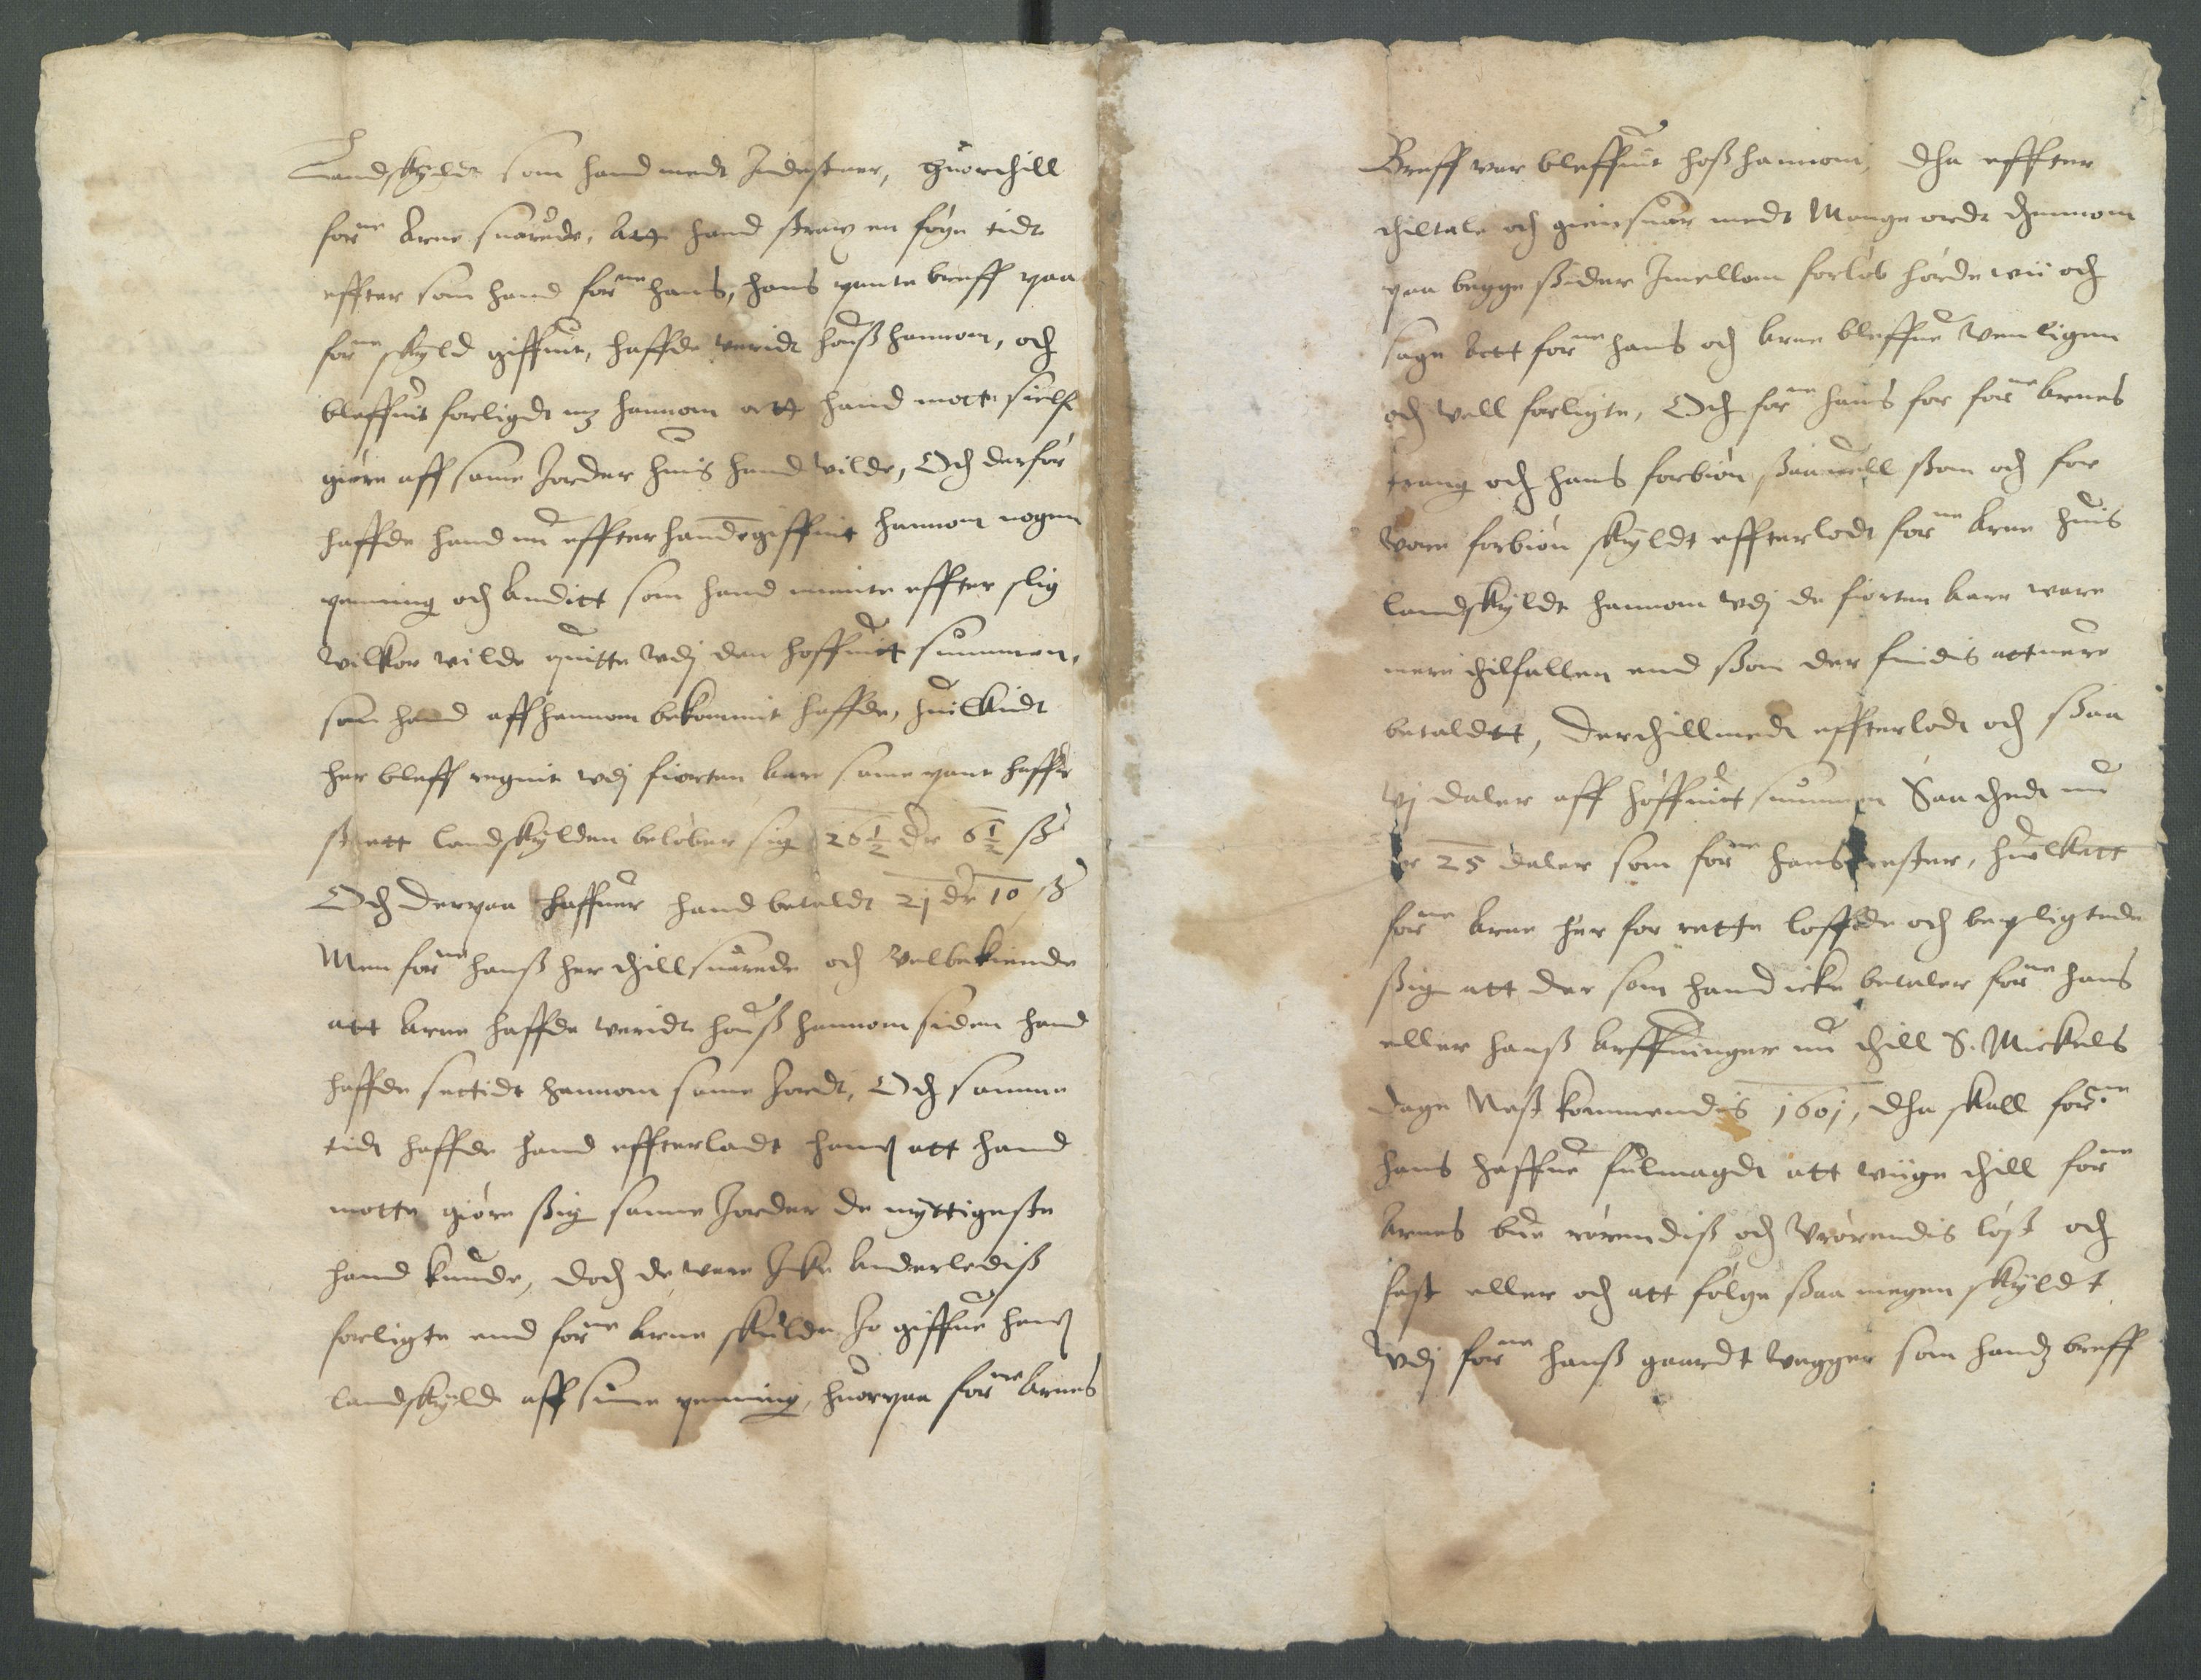 Landskyldt som hand medt Indestaar, Huorthill
forne Arne suarede, Att hand strax en føye tidt
effter som hand forne hans, hans pante breff paa
forne skyld giffuit, haffde veridt houss hannom, och
bleffuit forligdt mz hannom att hand motte sielf
giøre aff same Jorder huis hand vilde, Och derfor
haffde hand nu effterhande giffuit hannom nogen
penning och Anditt som hand mente effter slig
vilkor vilde quitte vdj den hoffuit summen,
som hand aff hannom bekommit haffde, huilkidt
her bleff regnit vdj fiorten aar same pant haffr
 att landskylden beløber sig 26½ dr 6½ ß
Och derpaa haffuer hand betaldt 21 dr 10 ß
Men forne hanss her thill suarede och velbekiende
att Arne haffde veridt houss hannom siden hand
haffde settidt hannom same Jordt, Och samme
tidt haffde hand effterladt hanom att hand
motte giøre ssig samme Jorder de nyttigeste
hand kunde, doch de, were Icke Anderlediss
forligte end forne Arne skulde Jo giffue hanom
landskyld aff sinne penning, huorpaa forne Arnes
Breff var bleffuit hoss hannom, Dha effter
thiltale och giensuar medt Mange ordt thennom
paa begge ssider Imellom forløb hørde wii och
sage Att forne hans och Arne bleffue venligen
och vell forligte, Och forne hans for forne Arnes
trang och hans forbøn ssaauell ssom och for
vore forbøn skyldt effterlodt forne Arne huis
landskyldt hannom vdj de fiorten Aar ware
mere thilfallen end ssom der findis att uere
betaldtt, Derthillmedt effterlodt och ssaa
vj daler aff hoffuit summen Saa thedt nu
er 25 daler som forne hans rester, huilkett
forne Arne her for rette loffde och bepligtede
ssig att der som hand icke betaler forne hans
eller hanss Arffuinger nu thill S. Mickels
dage Nestkommendis 1601, Dha skall forne
hans haffue fulmagdt att wiige thill forne
Arnes bue rørendiss och vrørendis løst och
fast eller och att følge ssaa megen skyldt
vdj forne hanss gaardt vegger som handz breff